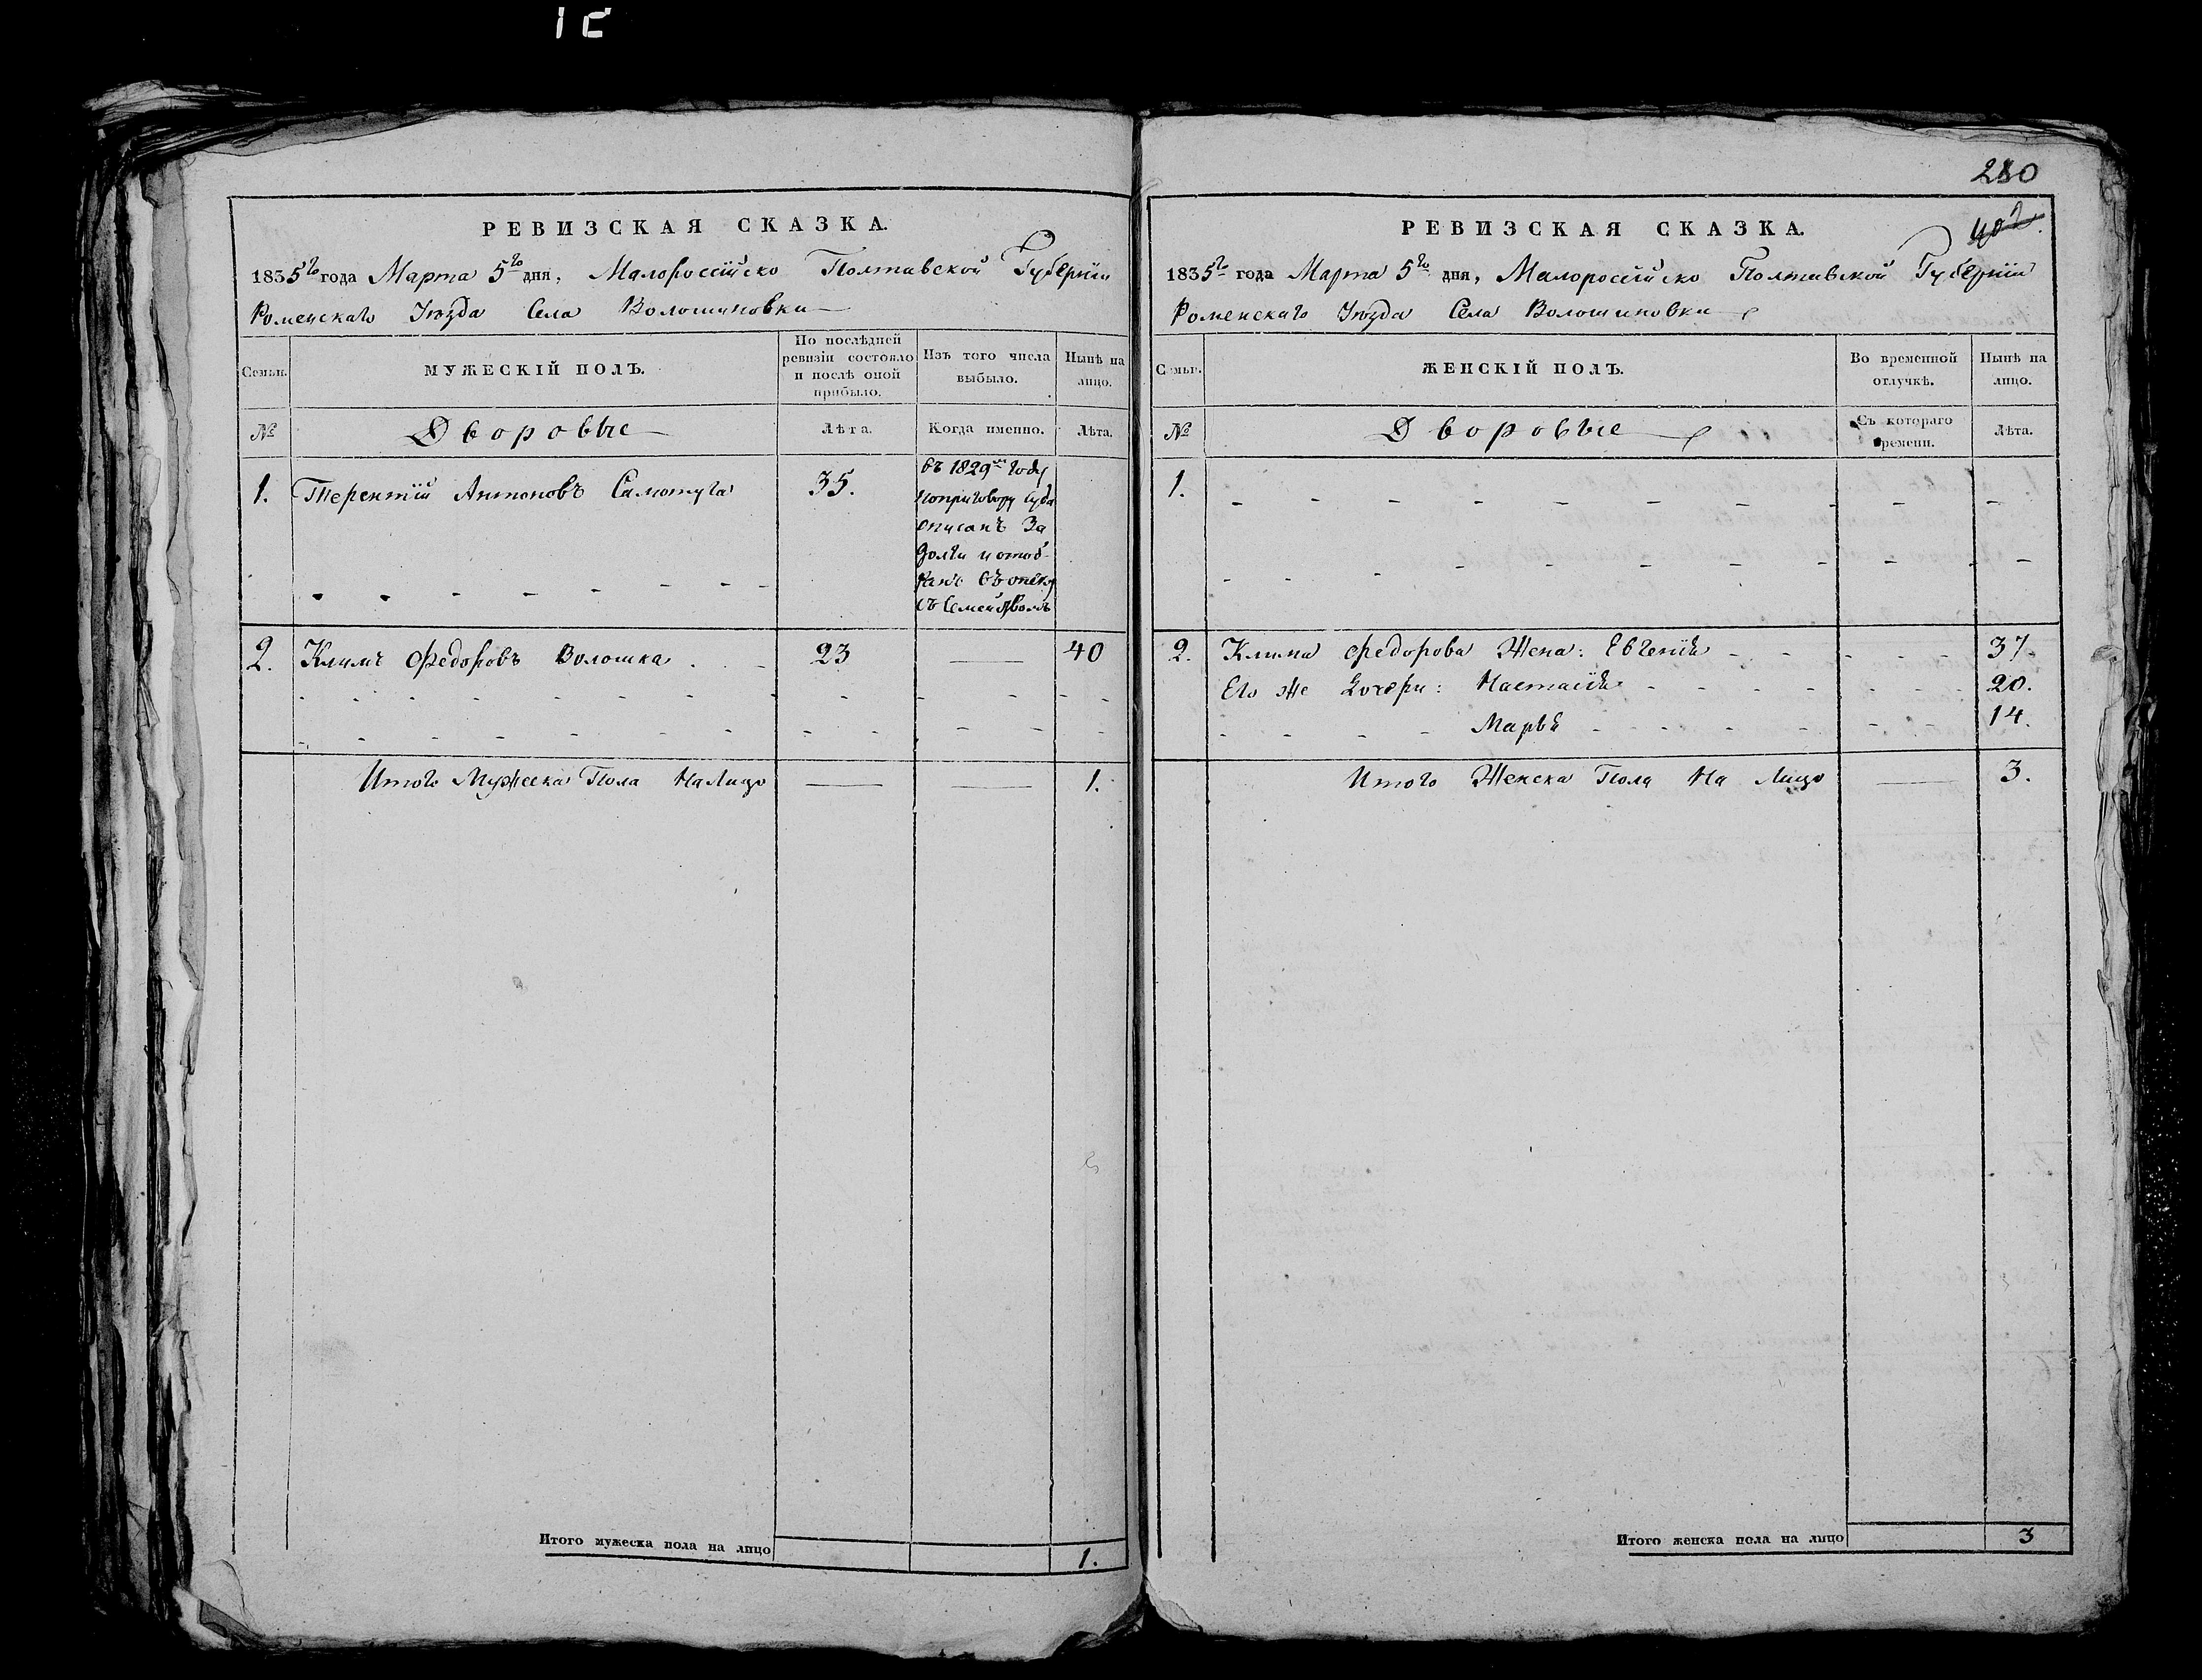 280
402.
РЕВИЗСКАЯ СКАЗКА.
1835го года Марта 5го дня, Малороссійско Полтавской Губерніи
Роменскаго Уѣзда Села Волошиновки
Семьи. МУЖЕСКІЙ ПОЛЪ. По послѣдней ревизіи состояло и послѣ оной прибыло. Изъ того числа выбыло. Нынѣ на лицо.
№ Дворовые Лѣта. Когда именно. Лѣта.
1. Терентій Антоновъ Самотуга 35. въ 1829м году
по приговору Суда
описанъ За
долги и отоб-
ранъ въ опеку
съ Семействомъ
2. Климъ Федоровъ Волошка 23 — 40
Итого Мужеска Пола На Лицо — — 1.
Итого мужеска пола на лицо 1.
РЕВИЗСКАЯ СКАЗКА.
1835го года Марта 5го дня, Малороссійско Полтавской Губерніи
Роменскаго Уѣзда Села Волошиновки
Семьи. ЖЕНСКІЙ ПОЛЪ. Во временной отлучкѣ. Нынѣ на лицо.
№ Дворовые Съ котораго времени. Лѣта.
1.
2. Клима Федорова Жена: Евгенія 37
Его же Дочери: Настасія 20.
Марья 14.
Итого Женска Пола На Лицо — 3.
Итого женска пола на лицо 3